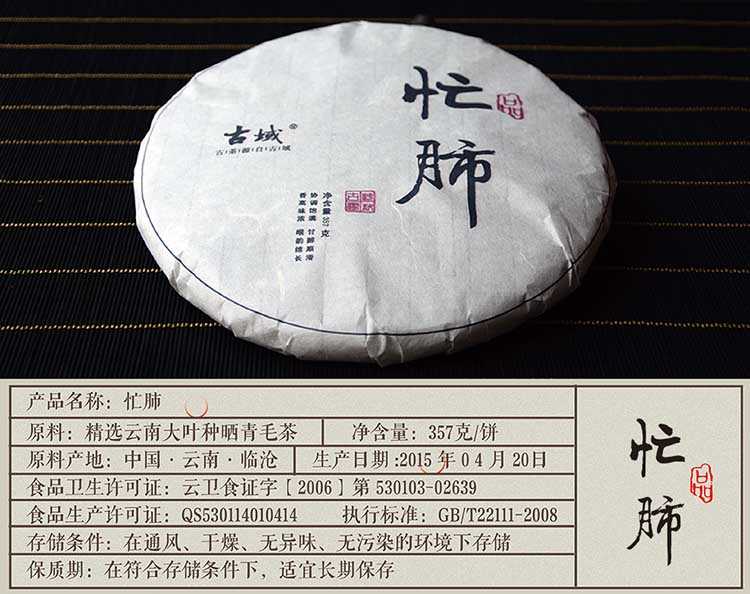 忙肺
品
古域®
古茶源自古域
净含量357克
协调饱满 甘醇顺滑
香高味浓 喉韵绵长
产品名称：忙肺
原料：精选云南大叶种晒青毛茶
净含量：357克/饼
原料产地：中国·云南·临沧
生产日期:2015年04月20日
食品卫生许可证：云卫食证字【2006】第530103-02639
食品生产许可证：QS530114010414
执行标准：GB/T22111-2008
存储条件：在通风、干燥、无异味、无污染的环境下存储
保质期：在符合存储条件下，适宜长期保存
忙肺
品